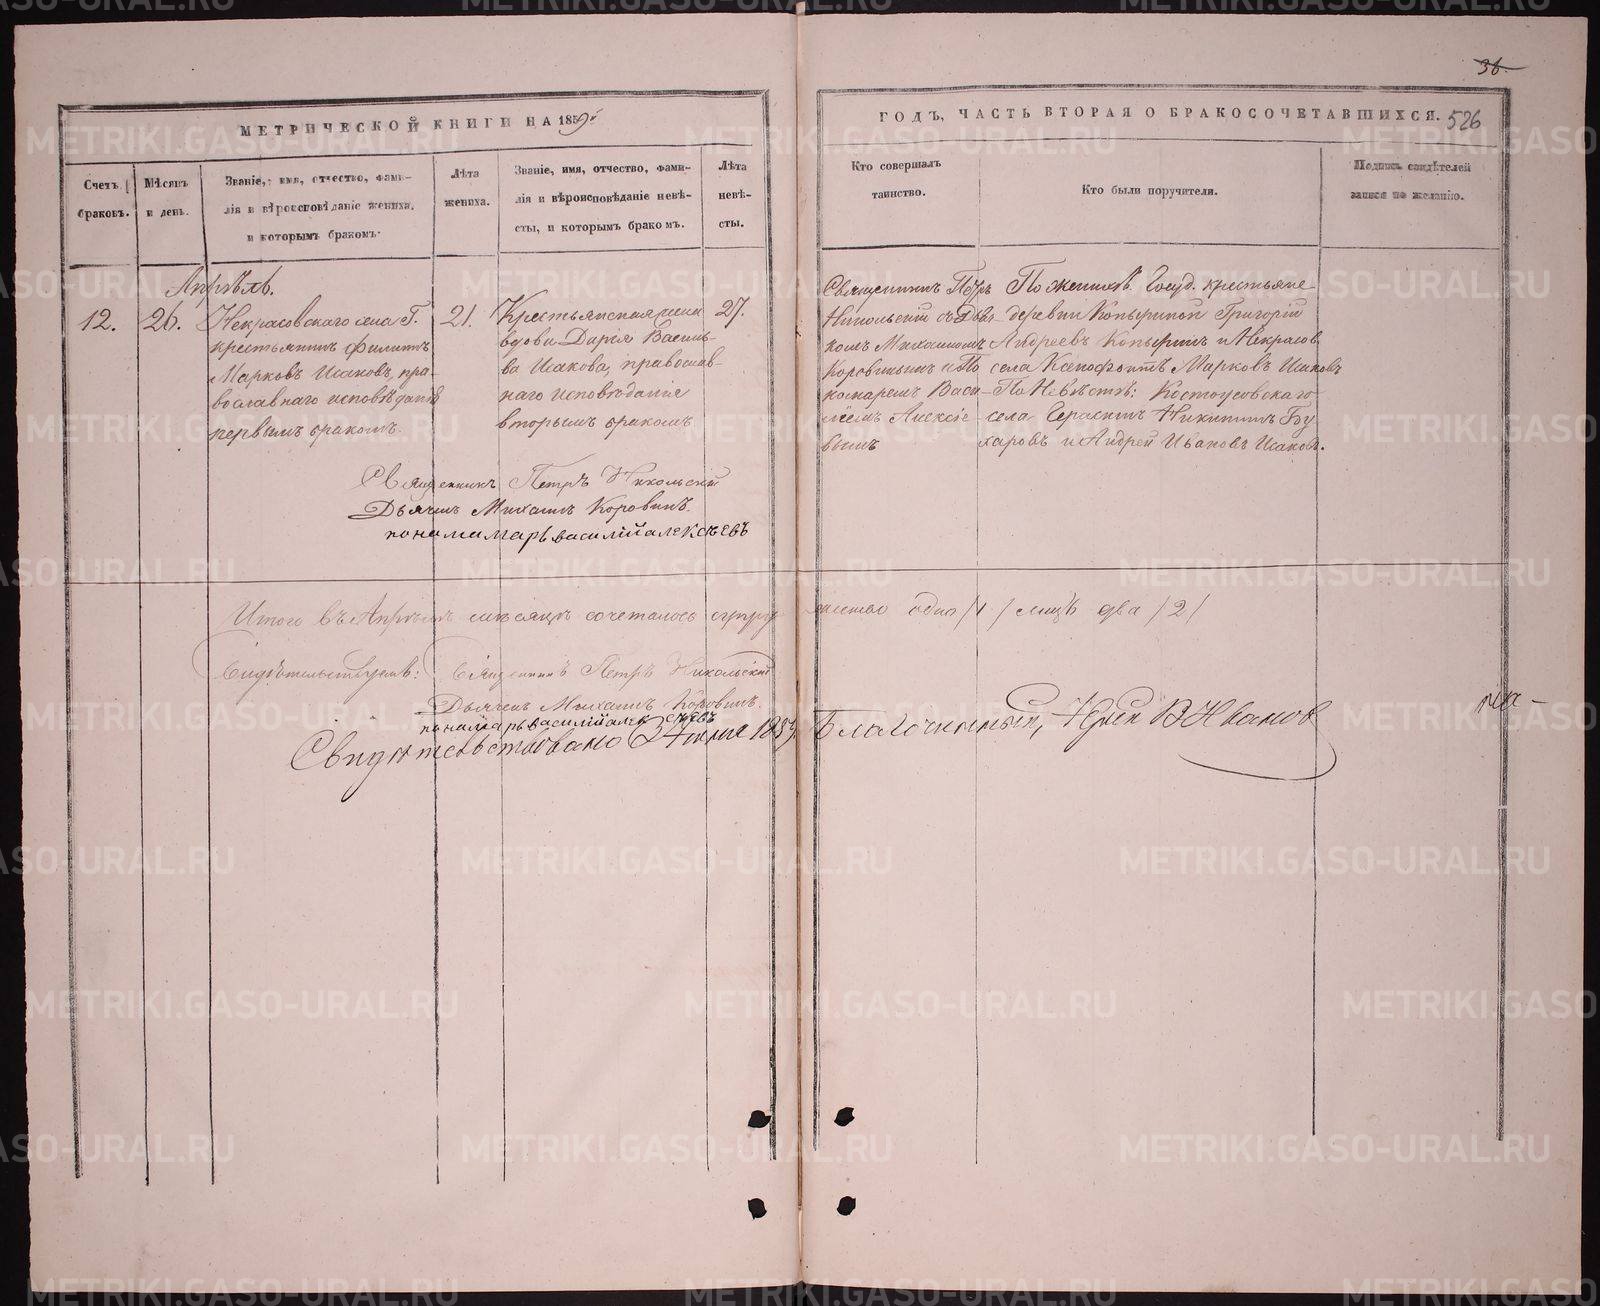 36.
МЕТРИЧЕСКОЙ КНИГИ НА 1859й
ГОДЪ, ЧАСТЬ ВТОРАЯ О БРАКОСОЧЕТАВШИХСЯ.
526
Счетъ браковъ.
Мѣсяцъ и день.
Званіе, имя, отчество, фами-
лія и вѣроисповѣданіе жениха,
и которымъ бракомъ.
Лѣта жениха.
Званіе, имя, отчество, фами-
лія и вѣроисповѣданіе невѣ-
сты, и которымъ бракомъ.
Лѣта невѣ-
сты.
Кто совершалъ
таинство.
Кто были поручители.
Подпись свидѣтелей
записи по желанію.
Апрѣль.
12.
26.
Некрасовскаго села Г.
крестьянинъ Филиппъ
Марковъ Исаковъ, пра-
вославнаго исповѣданія
первымъ бракомъ.
21.
Крестьянская жена
вдова Дарія Василь-
ва Исакова, православ-
наго исповѣданія
вторымъ бракомъ
27.
Священникъ Петръ
Никольскій съ Дьяч-
комъ Михаиломъ
Коровинымъ и По
номаремъ Васи-
ліемъ Алексіе-
вымъ
По женихѣ: Госуд. крестьяне
деревни Копыриной Григорій
Андреевъ Копыринъ и Некрасов.
села Ксенофонтъ Марковъ Исаковъ
По Невѣстѣ: Костоусовскаго
села Герасимъ Никитинъ Бу
харовъ и Андрей Ивановъ Исаковъ.
Священникъ Петръ Никольскій
Дьячекъ Михаилъ Коровинъ.
понамарь василій алексѣевъ
Итого въ Апрѣлѣ мѣсяцѣ сочеталось супру-
жество одно /1/ лицъ два /2/
Свидѣтельствуемъ: Священникъ Петръ Никольскій
Дьячекъ Михаилъ Коровинъ.
понамарь василій алексѣевъ
Свидѣтельствовано 24 1859. Благочинный, Іерей В Ивановъ
METRIKI.GASO-URAL.RU